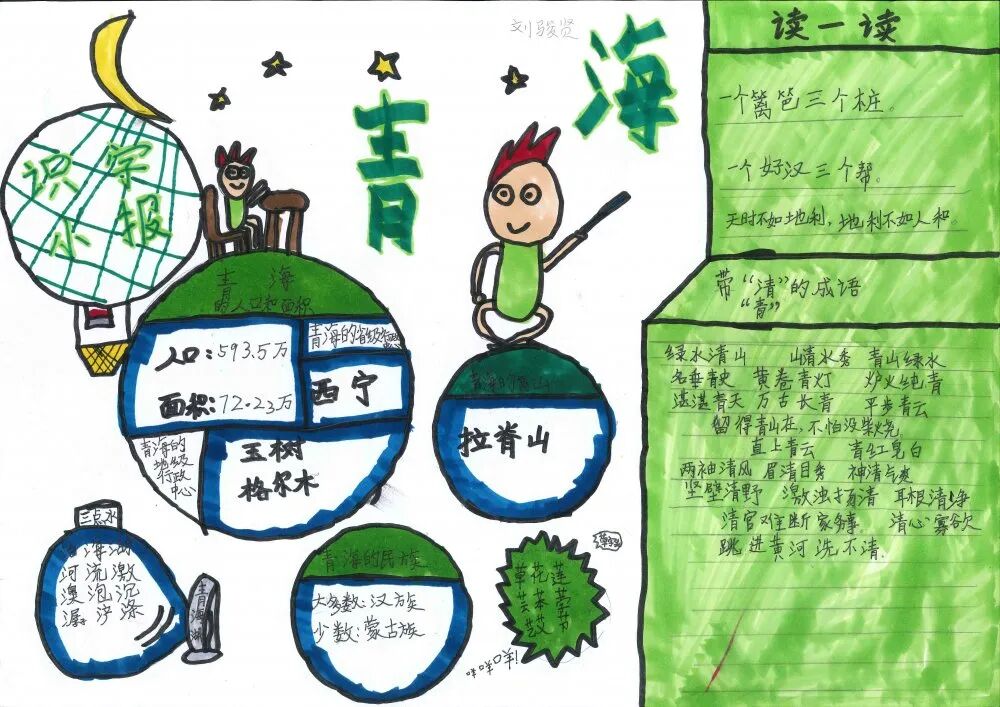 刘骏贤
青海
识字
小报
青海
的人口和面积
人口:593.5万
面积:72.23万
青海的省级行政
西宁
青海的
地级
行政
中心
玉树
格尔木
青海的高山
拉脊山
三点水
青海湖
河流激
澳泡沉
潺浐涤
青海湖
青海的民族
大多数:汉族
少数:蒙古族
草花莲
芸苯
艺艾节
咩咩咩!
读一读
一个篱笆三个桩。
一个好汉三个帮。
天时不如地利,地利不如人和。
带“清”的成语
“青”
绿水清山 山清水秀 青山绿水
名垂青史 黄卷青灯 炉火纯青
湛湛青天 万古长青 平步青云
留得青山在,不怕没柴烧
直上青云 青红皂白
两袖清风 眉清目秀 神清气爽
坚壁清野 激浊扬清 耳根清净
清官难断家务事 清心寡欲
跳进黄河洗不清.